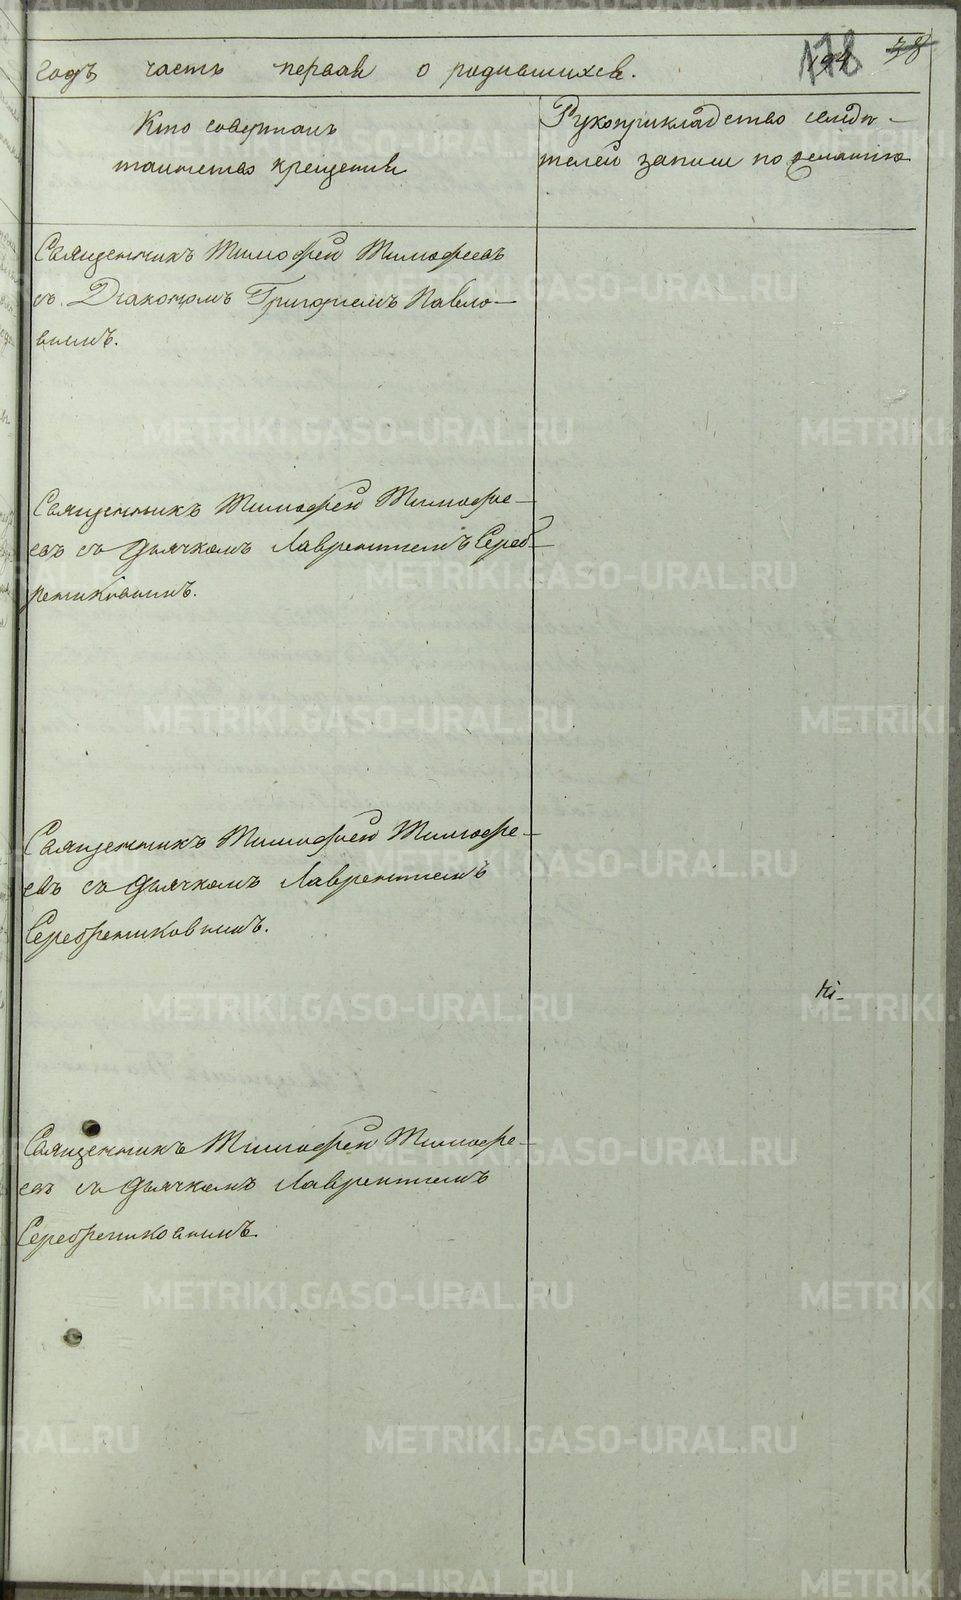 годъ часть первая о родившихся. 178 38
Кто совершалъ
таинство крещенія
Рукоприкладство свидѣ-
телей записи по желанію
Священникъ Тимофей Тимофеевъ
съ Діакономъ Григоріемъ Павло-
вымъ.
Священникъ Тимофей Тимофе-
евъ съ дьячкомъ Лаврентіемъ Сереб-
рениковымъ.
Священникъ Тимофей Тимофе-
евъ съ дьячкомъ Лаврентіемъ
Серебрениковымъ.
Священникъ Тимофей Тимофе-
евъ съ дьячкомъ Лаврентіемъ
Серебрениковымъ.
METRIKI.GASO-URAL.RU